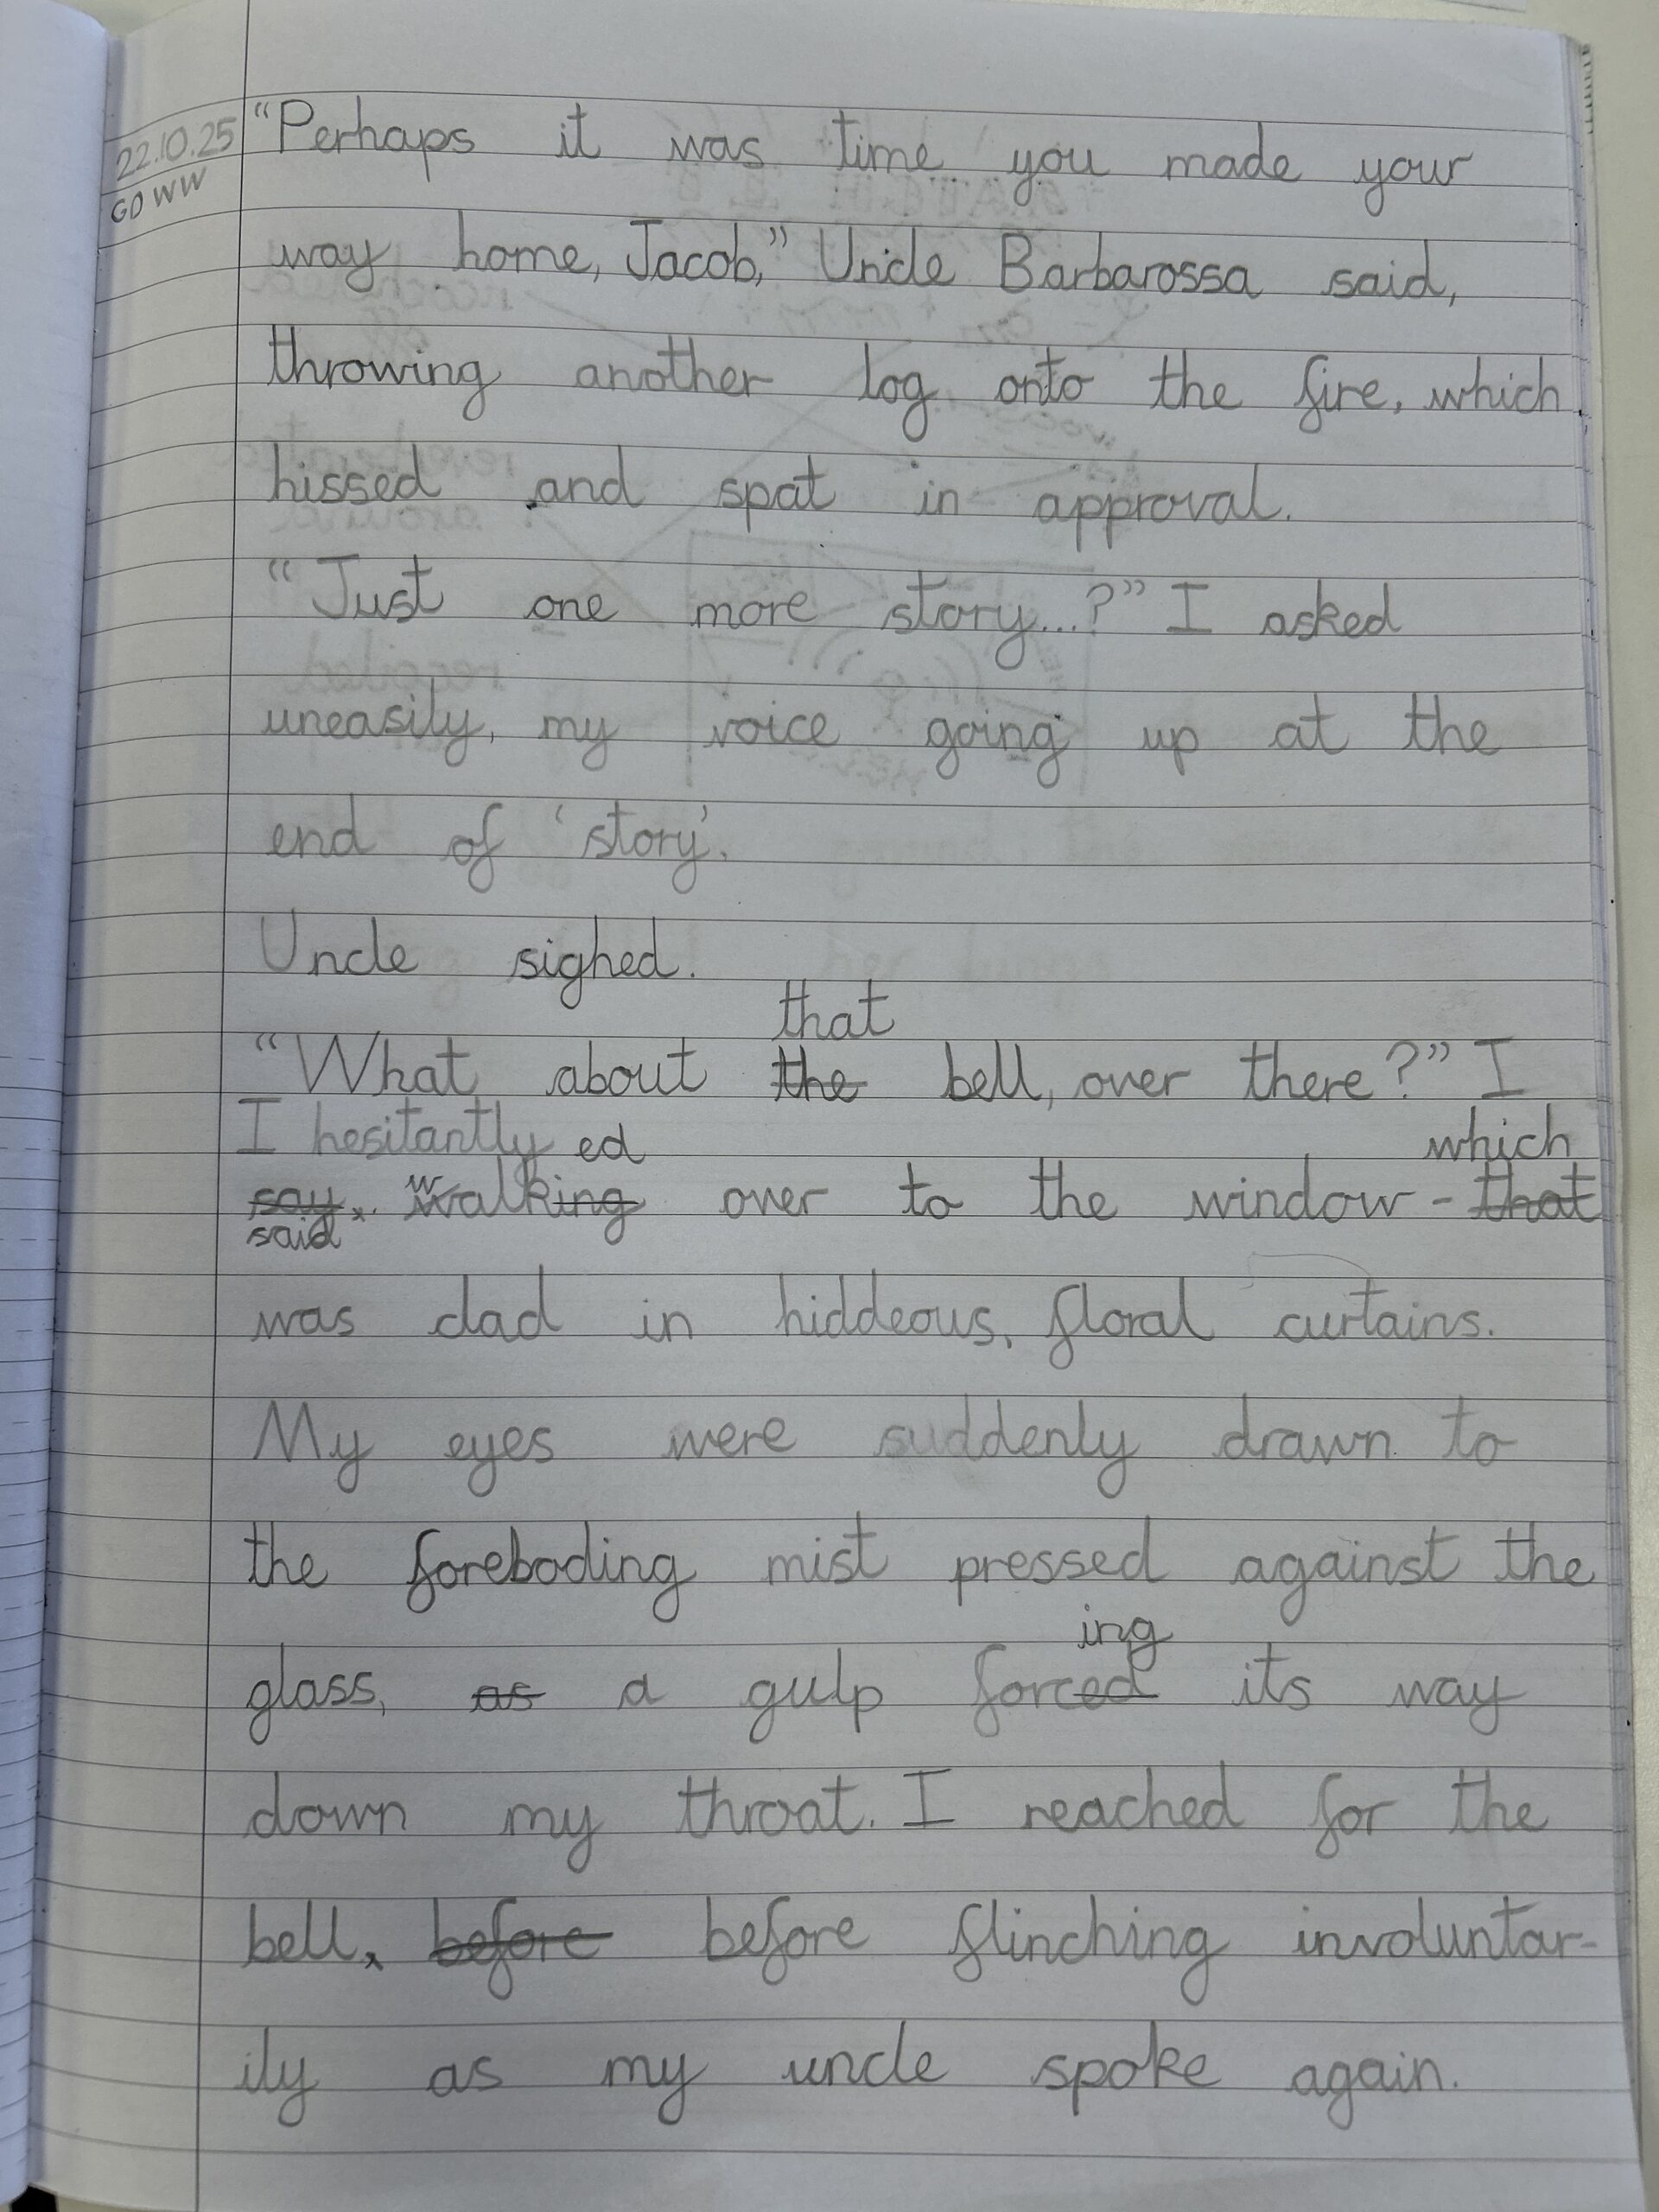 22.10.25
GD WW
"Perhaps it was time you made your
way home, Jacob," Uncle Barbarossa said,
throwing another log onto the fire, which
hissed and spat in approval.
"Just one more story...?" I asked
uneasily, my voice going up at the
end of 'story'.
Uncle sighed.
that
"What about the bell, over there?" I
I hesitantly ed which
say. walking over to the window - that
said
was clad in hiddeous, floral curtains.
My eyes were suddenly drawn to
the foreboding mist pressed against the
ing
glass, as a gulp forced its way
down my throat. I reached for the
bell, before before flinching involuntar-
ily as my uncle spoke again.